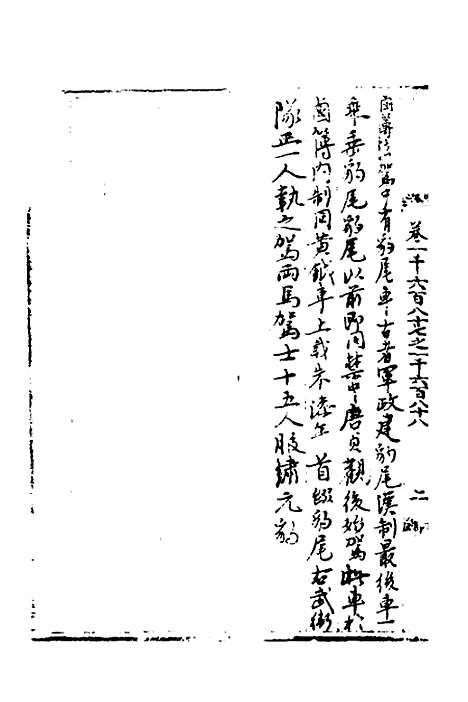 卷一千六百八十七之一千六百八十八
二
鹵簿法駕中有豹尾車古者軍政建豹尾漢制最後車一
乘垂豹尾豹尾以前即同禁中唐貞觀後始加此車於
鹵簿內制同黃鉞車上載朱漆竿首綴豹尾右武衛
隊正一人執之駕兩馬駕士十五人服繡元豹